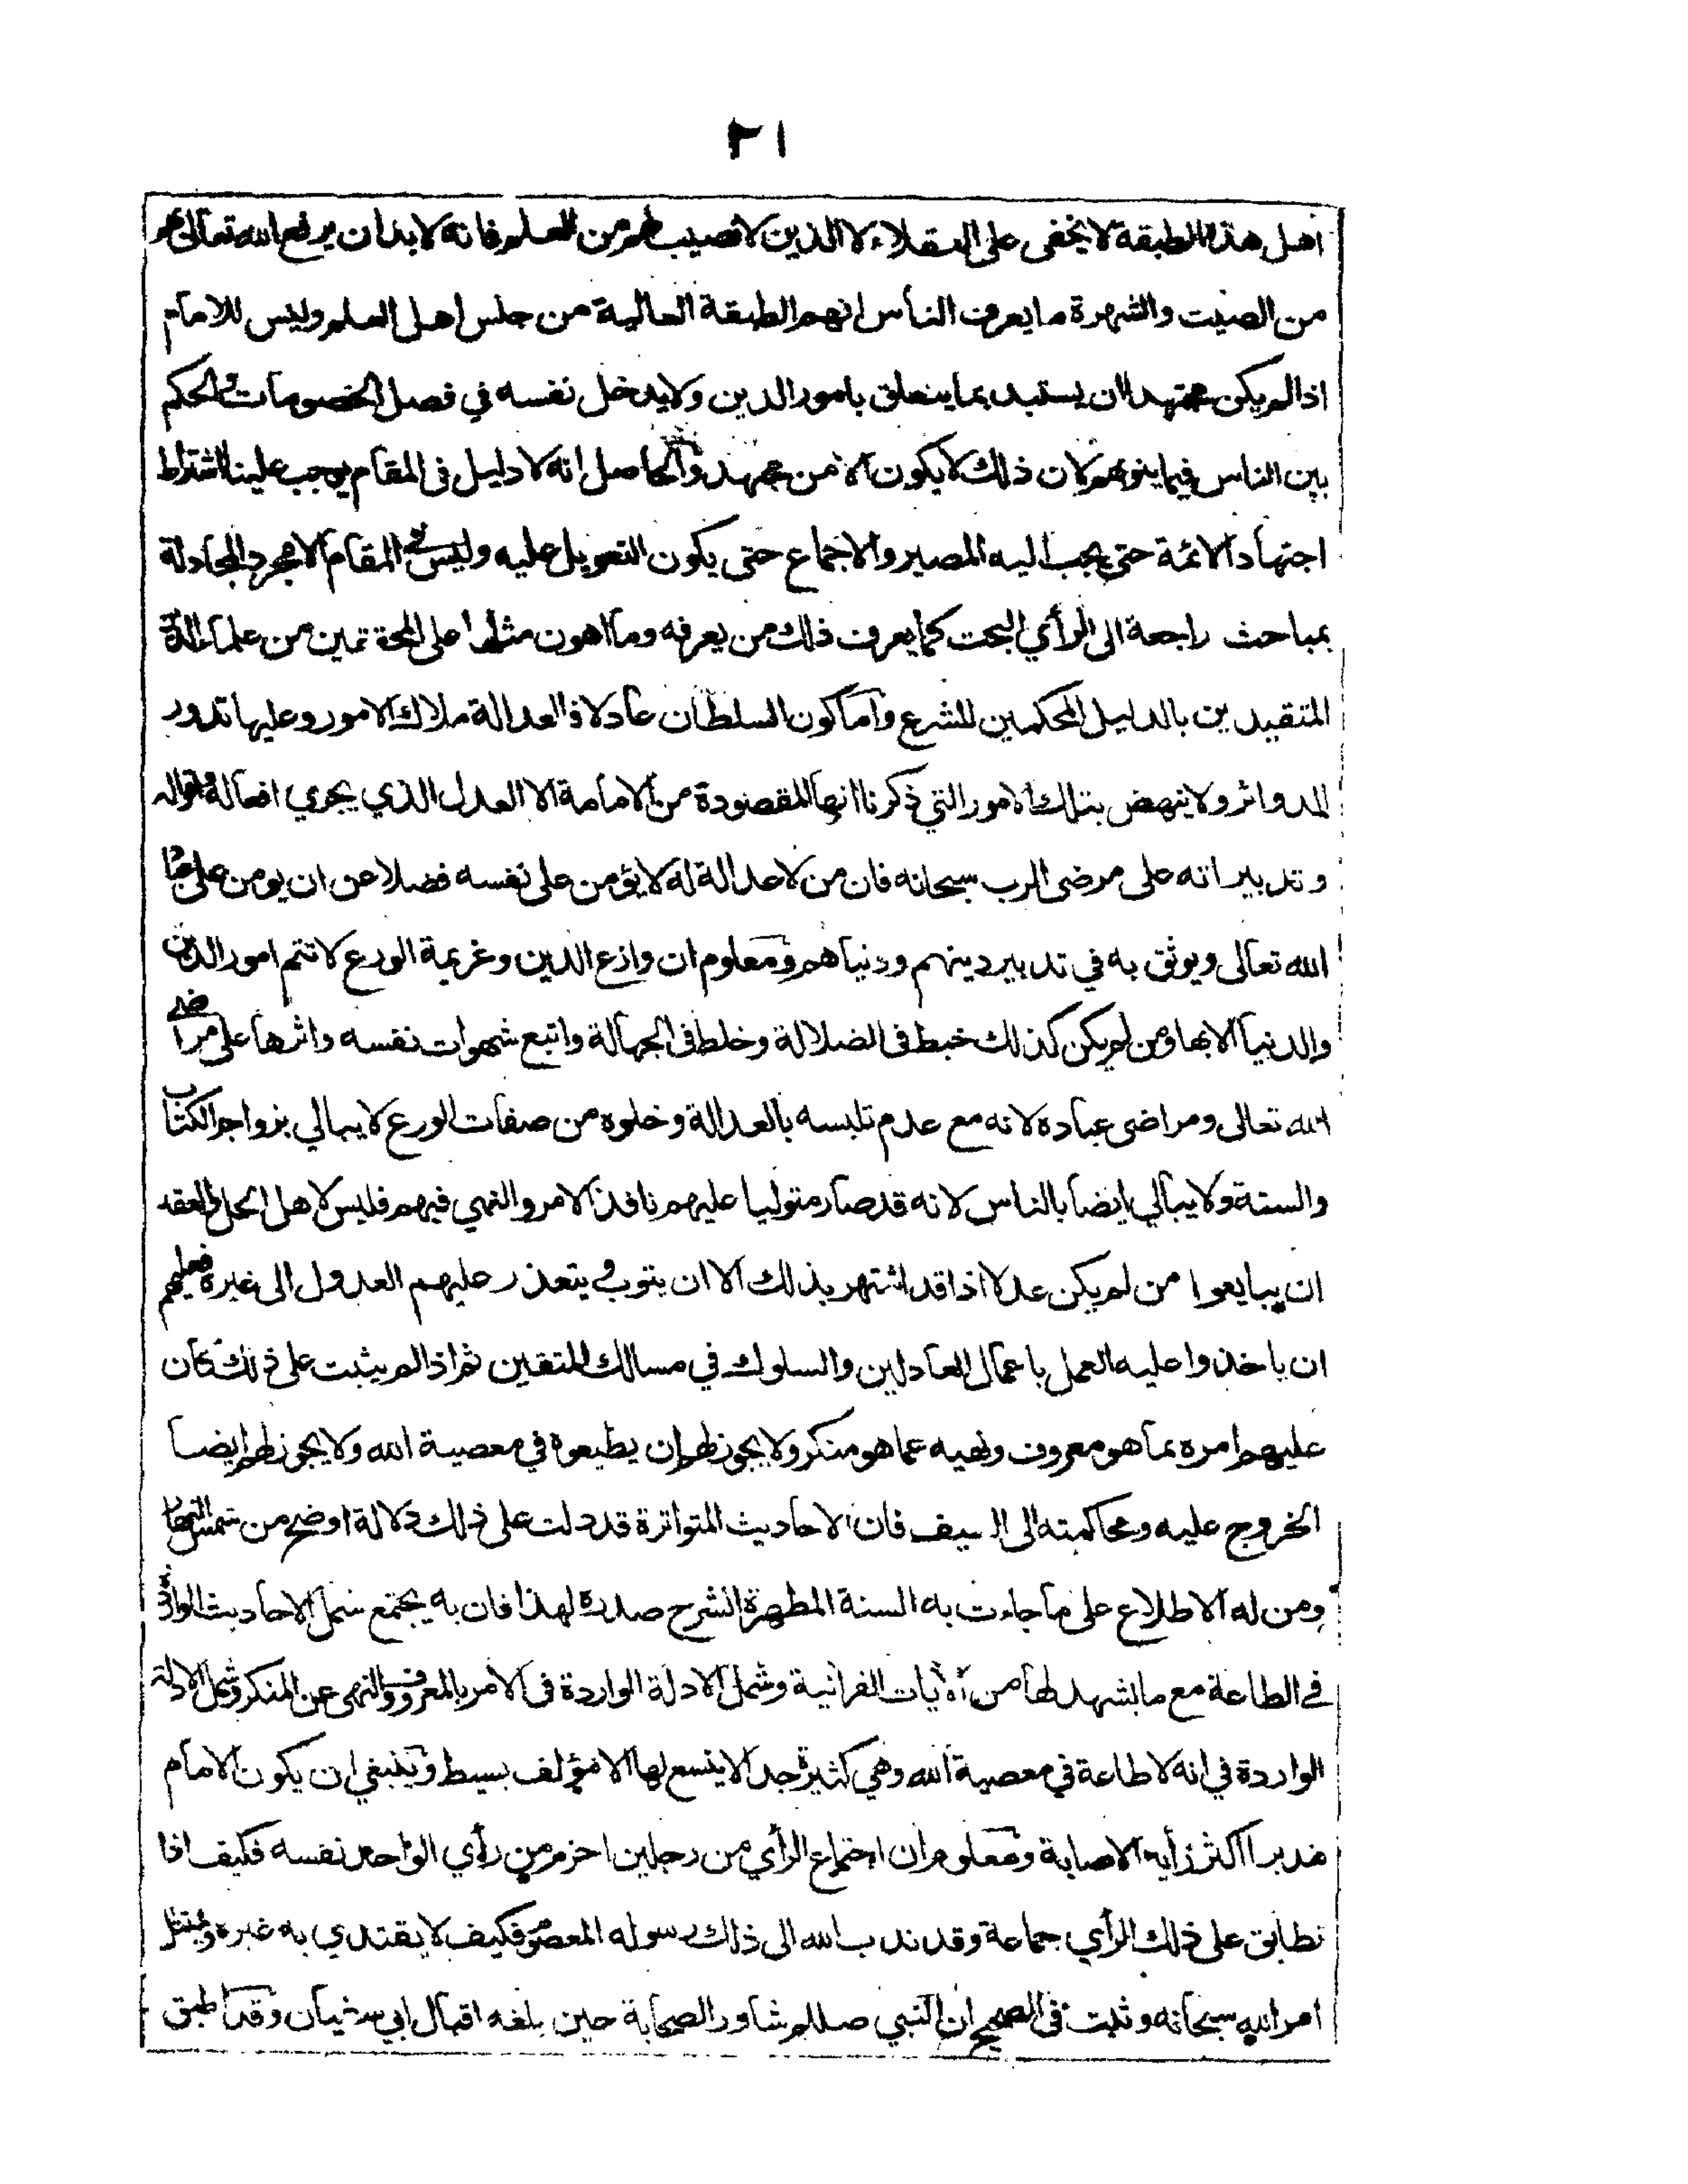 ٢١
اهل هذه الطبقة لا يخفى على العقلاء لا الذين لا نصيب لهم من العلم فانه لا بد ان يرفع الله تعالى لهم
من الصيت والشهرة ما يعرف الناس انهم الطبقة العالية من جلس اهل العلم وليس للامام
اذا لم يكن مجتهدا ان يستبد بما يتعلق بامور الدين ولا يدخل نفسه في فصل الخصومات والحكم
بين الناس فيما ينوبهم لان ذلك لا يكون الا من مجتهد والحاصل انه لا دليل فى المقام يوجب علينا اشتراط
اجتهاد الائمة حتى يجب اليه المصير والاجماع حتى يكون التعويل عليه وليس في المقام الا مجرد المجادلة
بمباحث راجعة الى الرأي البحت كما يعرف ذلك من يعرفه وما اهون مثلها على المحققين من علماء الدين
المتقيدين بالدليل المحكمين للشرع وأما كون السلطان عادلا فالعدالة ملاك الامور وعليها تدور
الدوائر ولا ينهض بتلك الامور التي ذكرنا انها المقصودة من الامامة الا العدل الذي يجري افعاله واقواله
وتدبيراته على مرضى الرب سبحانه فان من لا عدالة له لا يؤمن على نفسه فضلا عن ان يومن على عباد
الله تعالى ويوثق به في تدبير دينهم ودنياهم ومعلوم ان وازع الدين وعزيمة الورع لا تتم امور الدين
والدنيا الا بها ومن لم يكن كذلك خبط فى الضلالة وخلط فى الجهالة واتبع شهوات نفسه واثرها على مراضي
الله تعالى ومراضى عباده لانه مع عدم تلبسه بالعدالة وخلوه من صفات الورع لا يبالي بزواجر الكتاب
والسنة ولا يبالي ايضا بالناس لانه قد صار متوليا عليهم نافذ الامر والنهي فيهم فليس لاهل الحل والعقد
ان يبايعوا من لم يكن عدلا اذا قد اشتهر بذلك الا ان يتوب و يتعذر عليهم العدول الى غيره فعليهم
ان ياخذوا عليه العمل باعمال العادلين والسلوك في مسالك المتقين ثم اذا لم يثبت على ذلك كان
عليهم امره بما هو معروف ونهيه عما هو منكر ولا يجوز لهم ان يطيعوه في معصية الله ولا يجوز لهم ايضا
الخروج عليه ومحاكمته الى السيف فان الاحاديث المتواترة قد دلت على ذلك دلالة اوضح من شمس النهار
ومن له الاطلاع على ما جاءت به السنة المطهرة انشرح صدره لهذا فان به يجتمع شمل الاحاديث الواردة
في الطاعة مع ما يشهد لها من الآيات القرانية وشمل الادلة الواردة فى الامر بالمعروف والنهى عن المنكر وشمل الادلة
الواردة في انه لا طاعة في معصية الله وهي كثيرة جدا لا يتسع لها الا مؤلف بسيط وينبغي ان يكون الامام
مدبرا اكثر رأيه الاصابة ومعلوم ان اجتماع الرأي من رجلين احزم من رأي الواحد نفسه فكيف اذا
تطابق على ذلك الرأي جماعة وقد ندب الله الى ذلك رسوله المعصوم فكيف لا يقتدي به غيره ويمتثل
امر الله سبحانه وثبت فى الصحيح ان النبي صللم شاور الصحابة حين بلغه اقبال ابي سفيان وقد اطبق